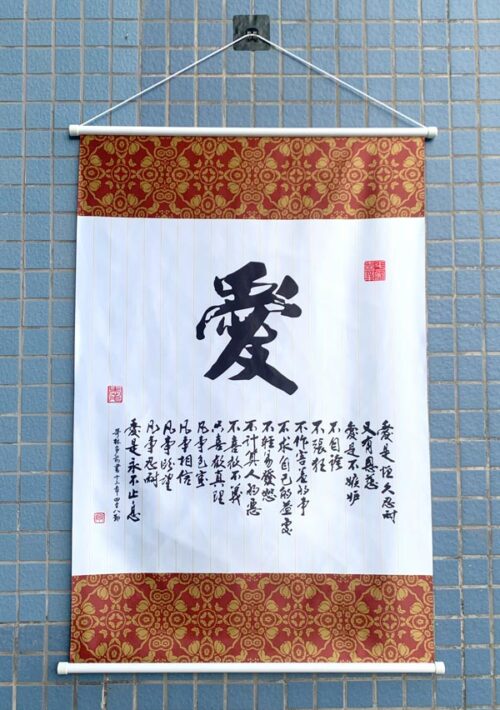 愛
愛是恒久忍耐
又有恩慈
愛是不嫉妒
不自誇
不張狂
不作害羞的事
不求自己的益處
不輕易發怒
不計算人的惡
不喜歡不義
只喜歡真理
凡事包容
凡事相信
凡事盼望
凡事忍耐
愛是永不止息
哥林多前書十三章四至八節